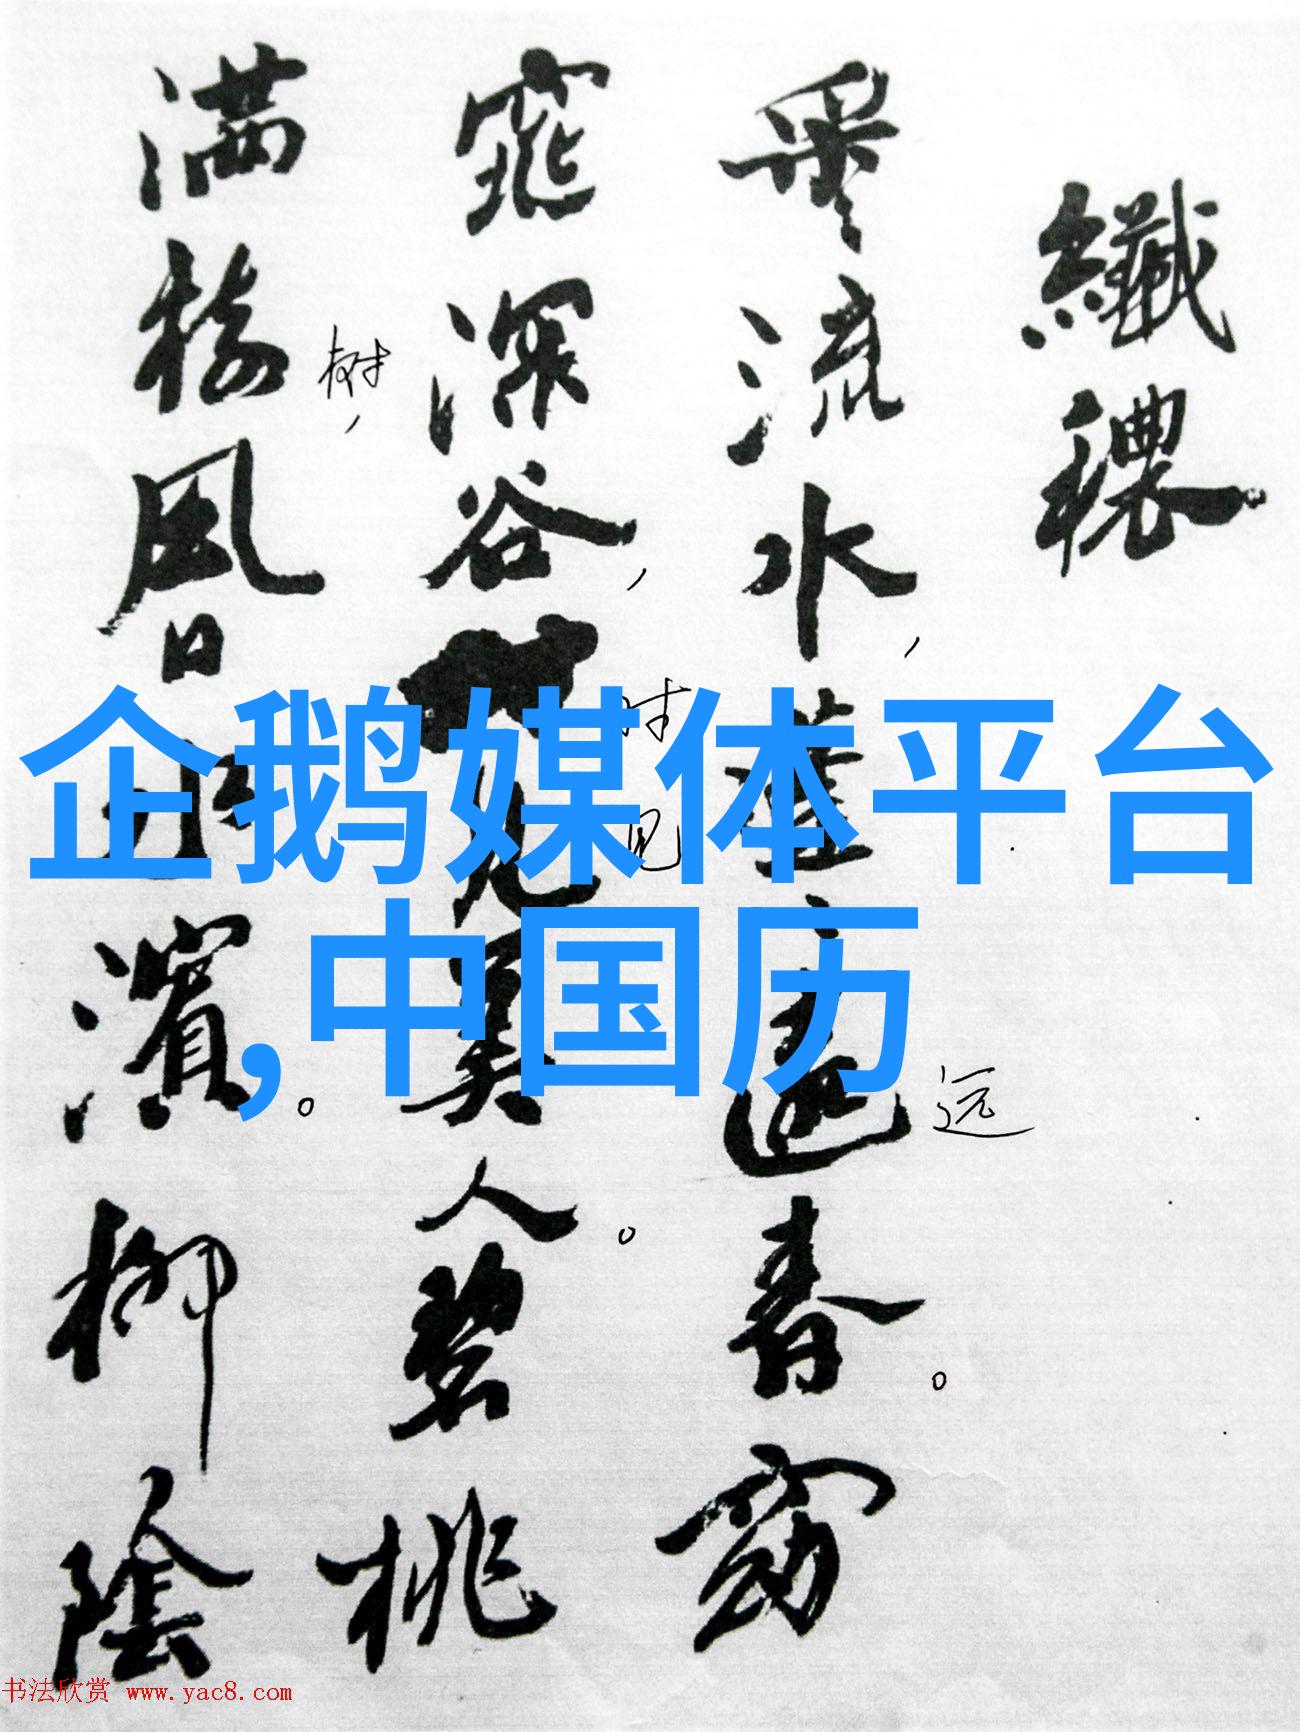 纖穠
采流水，蓬蓬遠春。窈
窕深谷，見美人。碧桃
满樹風日水濱。柳陰
树，
时
见
远
企鹅媒体平台
,中国历
书法欣赏 www.yac8.com